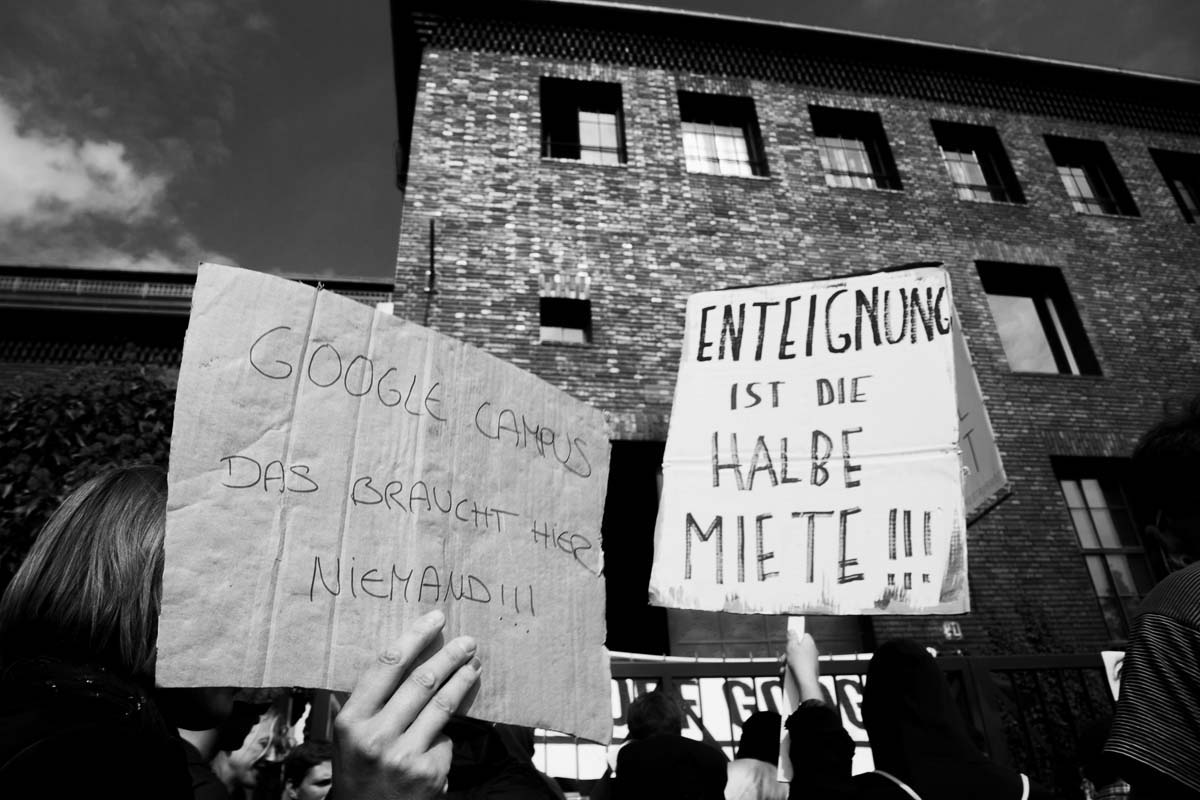 GOOGLE CAMPUS
DAS BRAUCHT HIER
NIEMAND!!!
ENTEIGNUNG
IST DIE
HALBE
MIETE !!!